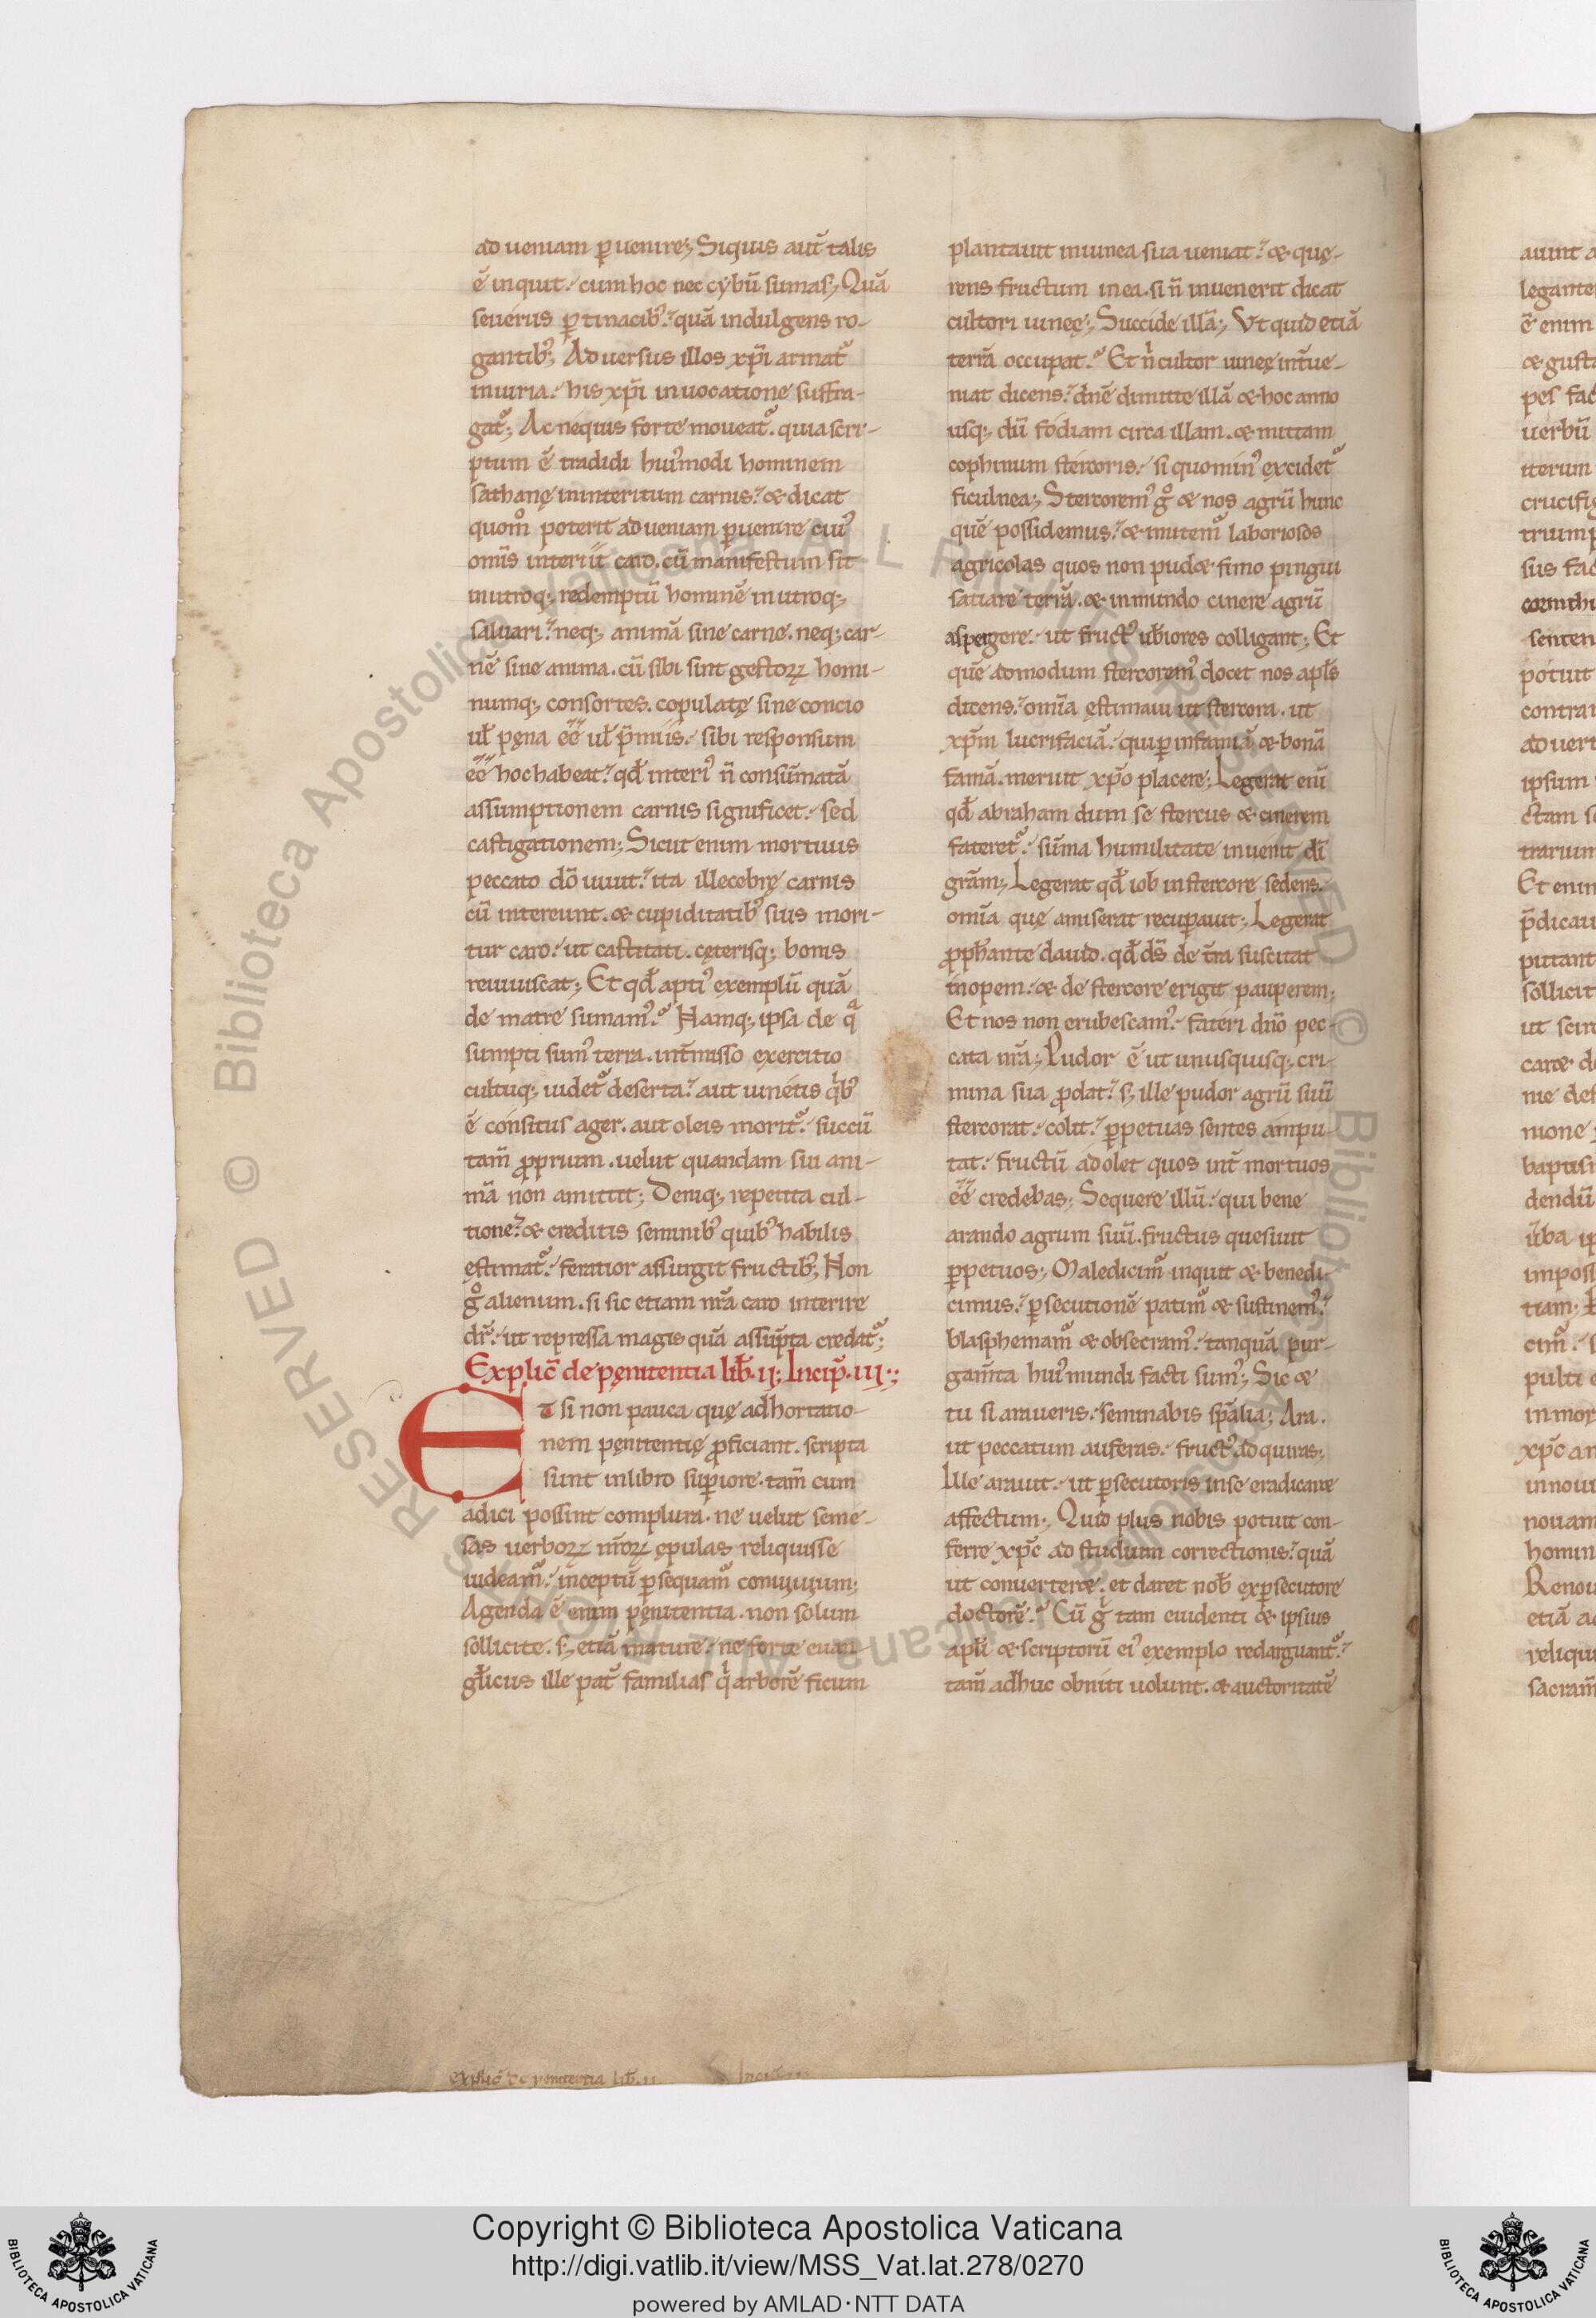 ad ueniam ꝑuenire; Siquis aut̄ talis
ē inquit. cum hoc nec cybū sumas; Quā
seuerus ꝑtinacibꝰ. quā indulgens ro-
gantibꝰ; Aduersus illos xp̄i armatᷣ
iniuria. his xp̄i inuocatione suffra-
gatᷣ; Ac nequis forte moueatᷣ. quia scri-
ptum ē tradidi huiꝰmodi hominem
sathanę ininteritum carnis. & dicat
quom̊ poterit ad ueniam ꝑuenire cuiꝰ
omīs interiit caro. cū manifestum sit
inutroq; redemptū hominē inutroq;
saluari. neq; animā sine carne. neq; car-
nē sine anima. cū sibi sint gestoꝝ homi-
numq; consortes. copulatę sine concio
ul̄ pęna ēē ul̄ p̄miis. sibi responsum
ēē hoc habeat. qd̄ interiꝰ n̄ consūmatā
assumptionem carnis significet. sed
castigationem; Sicut enim mortuus
peccato dō uiuit. ita illecebrę carnis
cū intereunt. & cupiditatibꝰ suis mori-
tur caro. ut castitati. cęterisq; bonis
reuiuiscat; Et qd̄ aptiꝰ exemplū quā
de matre sumamꝰ. Namq; ipsa de qͣ
sumpti sumꝰ terra. int̄misso exercitio
cultuq; uidetᷣ deserta. aut uinetis qͥbꝰ
ē consitus ager. aut oleis moritᷣ. succū
tam̄ ꝓprium. uelut quandam sui ani-
mā non amittit; Deniq; repetita cul-
tione. & creditis seminibꝰ quibꝰ habilis
ęstimatᷣ. feratior assurgit fructibꝰ; Non
g̊ alienum. si sic etiam nr̄a caro interire
dr̄. ut repressa magis quā assūpta credatᷣ;
Explic̄ de pęnitentia lib̄. ii; Incip̄. iii;
Et si non pauca quę adhortatio-
nem pęnitentię ꝓficiant. scripta
sunt inlibro suꝑiore. tam̄ cum
adici possint complura. ne uelut seme-
sas uerboꝝ nr̄oꝝ ępulas reliquisse
uideamᷣ. inceptū ꝑsequamᷣ conuiuium;
Agenda ē enim pęnitentia. non solum
sollicite. s; etiā mature. ne forte euan-
gl̄icus ille pat̄ familias qͥ arborē ficum
plantauit inuinea sua ueniat. & quę-
rens fructum inea. si n̄ inuenerit dicat
cultori uineę; Succide illā; Vt quid etiā
terrā occupat. Et nͥ cultor uineę int̄ue-
niat dicens. dn̄e dimitte illā & hoc anno
usq; dū fodiam circa illam. & mittam
cophinum stercoris. si quominꝰ excidetᷣ
ficulnea; Stercoremꝰ g̊ & nos agrū hunc
quē possidemus. & imitemᷣ laboriosos
agricolas quos non pud& fimo pingui
satiare terrā. & inmundo cinere agrū
aspergere. ut fructꝰ ub̄iores colligant; Et
quē admodum stercoremꝰ docet nos apl̄s
dicens. omīa ęstimaui ut stercora. ut
xp̄m lucrifaciā. qui ꝑ infamiā & bonā
famā. meruit xp̄o placere; Legerat eni̅
qd̄ abraham dum se stercus & cinerem
fateretᷣ. sūma humilitate inuenit dī
grām; Legerat qd̄ iob instercore sedens.
omīa quę amiserat recuꝑauit; Legerat
ꝓph̄ante dauid. qd̄ ds̄ de t̄ra suscitat
inopem. & de stercore erigit pauperem;
Et nos non erubescamꝰ. fateri dn̄o pec-
cata nr̄a; Pudor ē ut unusquisq; cri-
mina sua ꝓdat. s; ille pudor agrū suū
stercorat. colit. ꝑpetuas sentes ampu-
tat. fructū adolet quos int̄ mortuos
ēē credebas; Sequere illū. qui bene
arando agrum suū. fructus quesiuit
ꝑpetuos; Maledicimᷣ inquit & benedi-
cimus. ꝑsecutionē patimᷣ & sustinemꝰ.
blasphemamᷣ & obsecramꝰ. tanquā pur-
gam̄ta huiꝰ mundi facti sumꝰ; Sic &
tu si araueris. seminabis sp̄alia; Ara.
ut peccatum auferas. fructꝰ adquiras;
Ille arauit. ut ꝑsecutoris inse eradicare
affectum; Quid plus nobis potuit con-
ferre xp̄c ad studium correctionis. quā
ut conuerter&. et daret nob̄ exꝑsecutore
doctorē. Cū gͥ tam euidenti & ipsius
apl̄i & scriptorū eiꝰ exemplo redarguantᷣ.
tam̄ adhuc obniti uolunt. & auctoritatē
explic̄ de penitentia lib̄. ii
Copyright © Biblioteca Apostolica Vaticana
http://digi.vatlib.it/view/MSS_Vat.lat.278/0270
powered by AMLAD·NTT DATA
BIBLIOTECA APOSTOLICA VATICANA
BIBLIOTECA APOSTOLICA VATICANA